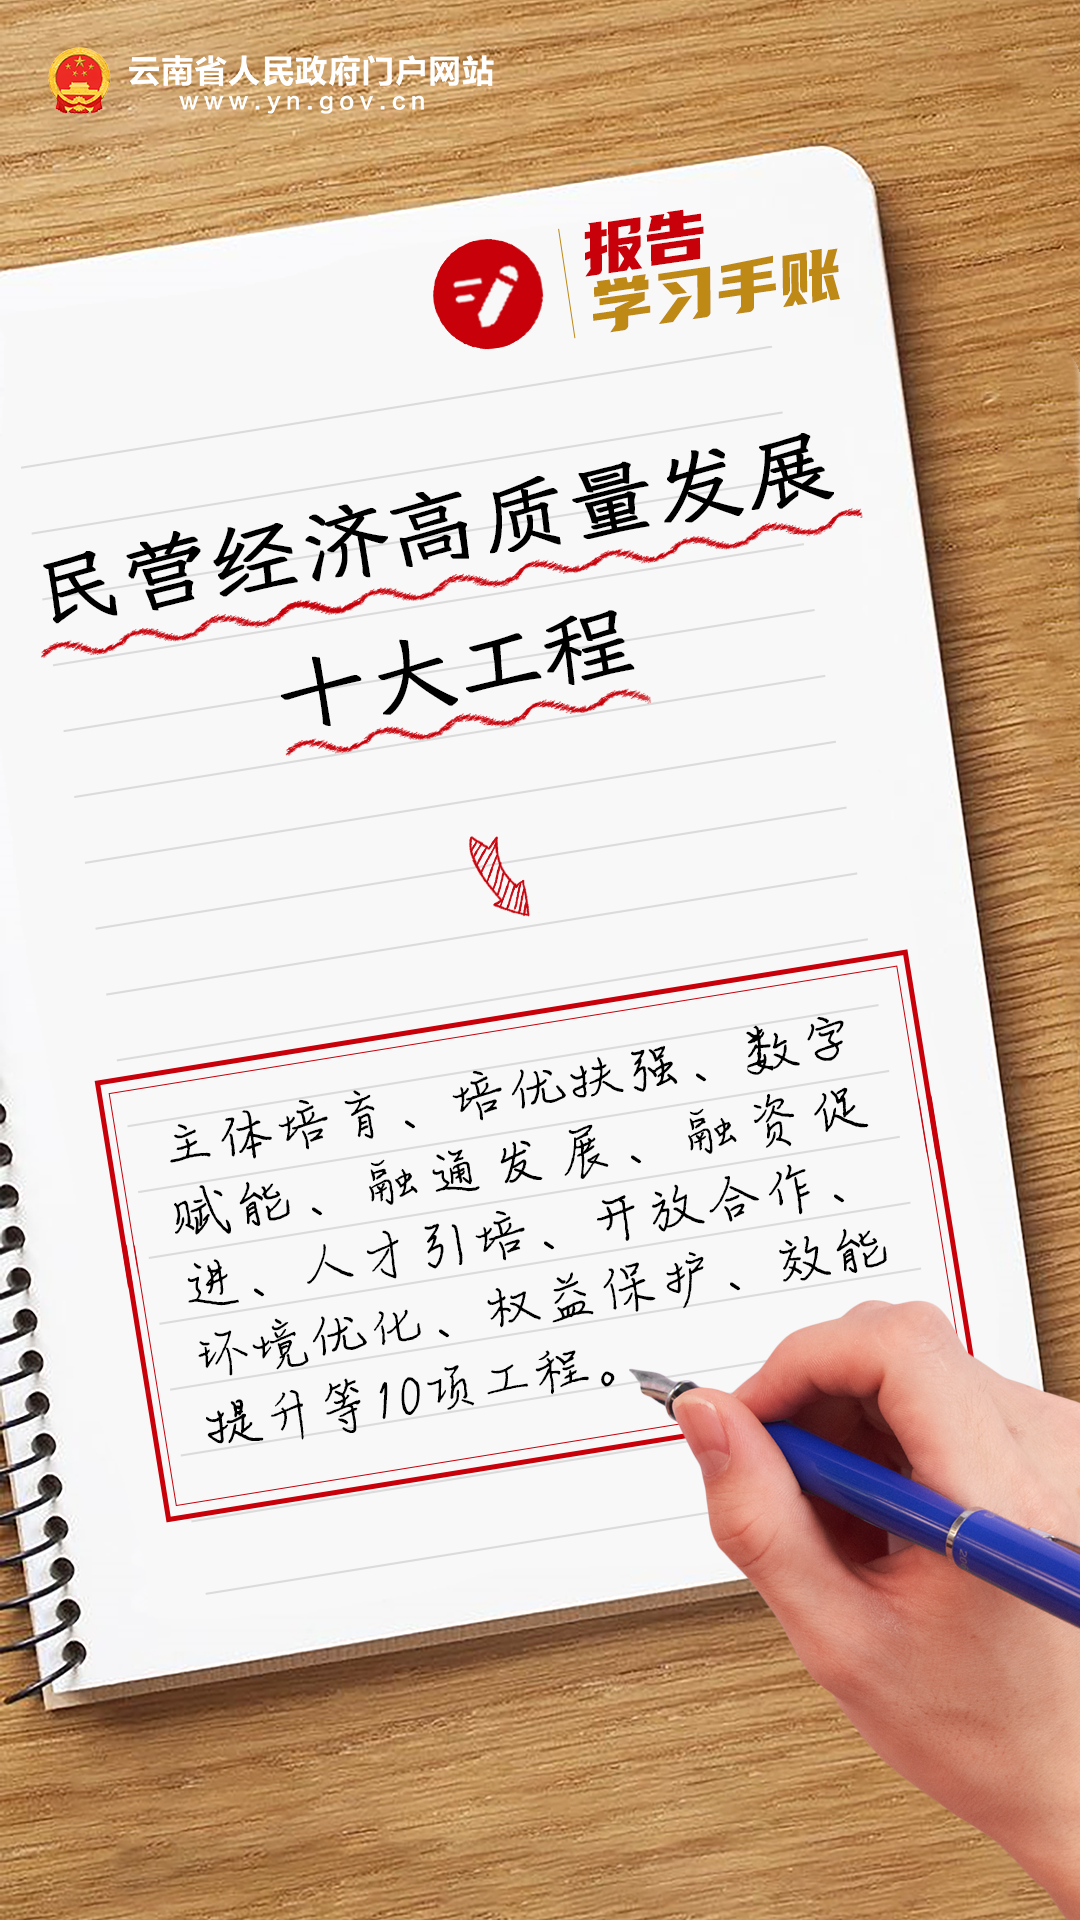 云南省人民政府门户网站
www.yn.gov.cn
报告
学习手账
民营经济高质量发展
十大工程
主体培育、培优扶强、数字
赋能、融通发展、融资促
进、人才引培、开放合作、
环境优化、权益保护、效能
提升等10项工程。